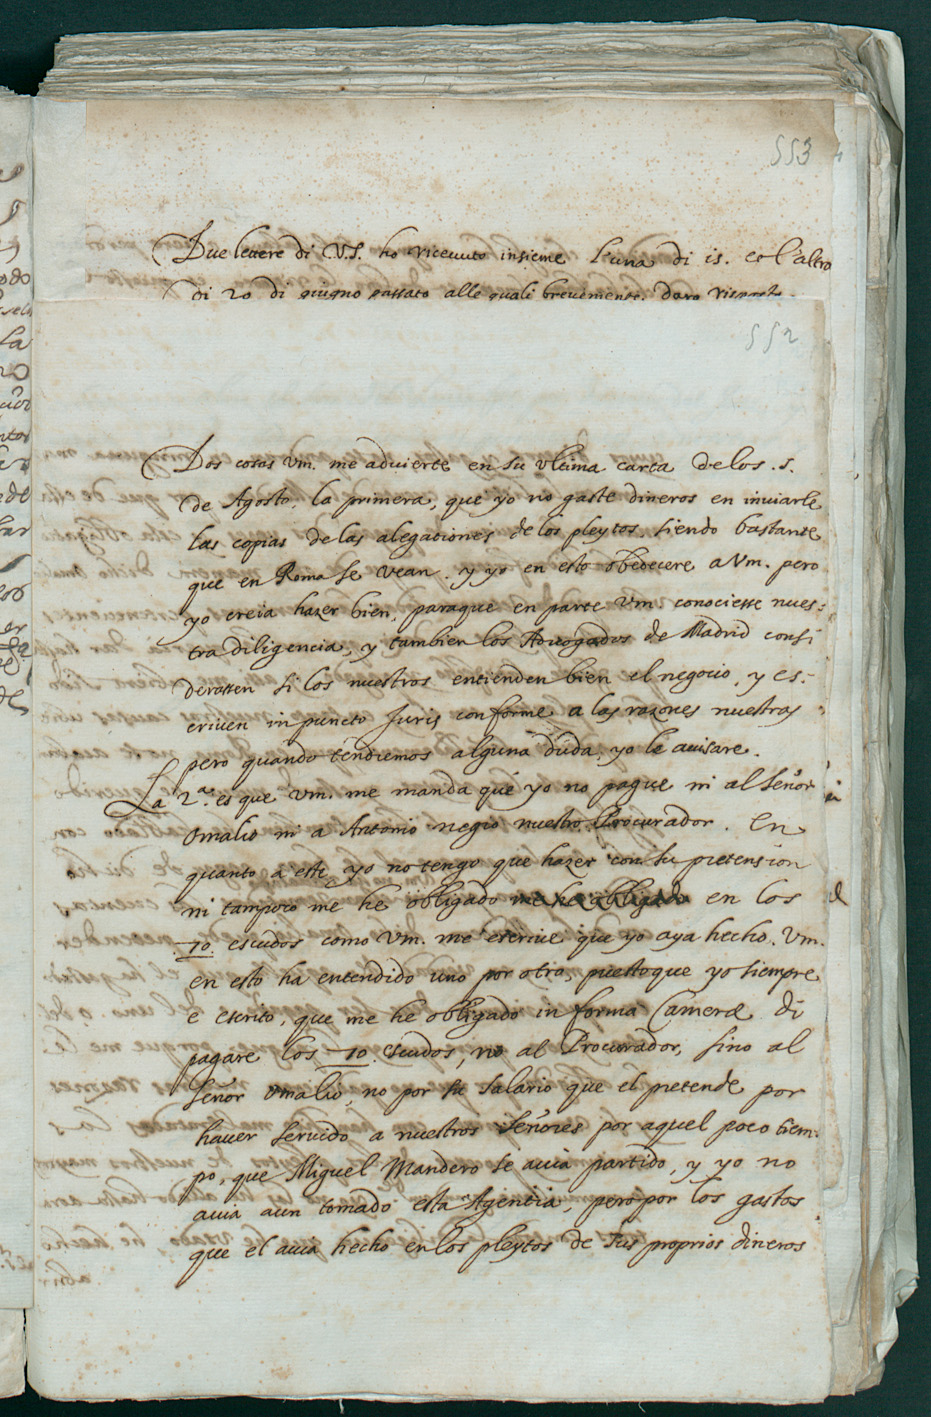 553
Due lettere di V.S. ho riceuuto insieme l'una di 15. et l'altro
di 20 di giugno passato alle quali breuemente. daro risposta.
552
Dos cosas Vm. me aduierte en su vltima carta de los .5.
de Agosto. la primera, que yo no gaste dineros en inuiarle
las copias de las alegationes de los pleytos, siendo bastante
que en Roma se vean. y yo en esto obedecere a Vm. pero
yo creia hazer bien, paraque en parte Vm. conociesse nues:
tra diligencia, y tambien los Aduogados de Madrid consi
derassen si los nuestros entienden bien el negocio, y es:
criuen in puncto Juris conforme a las razones nuestras
pero quando tendremos alguna duda, yo le auisare.
La 2.ª es que Vm. me manda que yo no pague ni al Señor
Omalio ni a Antonio negro nuestro Procurador. En
quanto a este yo no tengo que hazer con su pretension
ni tampoco me he obligado me he obligado en los
70. escudos como Vm. me escriue que yo aya hecho. Vm.
en esto ha entendido uno por otro, puestoque yo siempre
e escrito, que me he obligado in forma Cameræ di
pagare los 70. scudos, no al Procurador, sino al
Señor Omalio, no por su salario que el pretende por
hauer seruido a nuestros Señores por aquel poco tiem:
po, que Miguel Mandero se auia partido, y yo no
auia aun tomado esta Agentia, pero por los gastos
que el auia hecho en los pleytos de sus proprios dineros